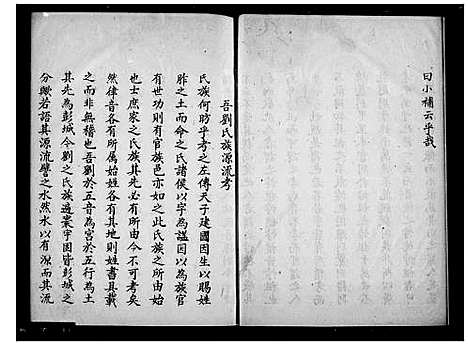 曰小補云乎哉
吾劉氏族源流考
氏族何昉乎考之左傳天子建國因生以賜姓
胙之土而命之氏諸侯以字為謚因以為族官
有世功則有官族邑亦如之此氏族之所由始
也士庶家之氏其先必有所由今不可考矣
然律音各有所屬始姓各有其地則姓書具載
之而非無稽也吾劉於五音為宮於五行為土
其先為彭城今劉之氏族遍寰宇因皆彭城之
分歟若語其源流譬之水然水以有源而其流